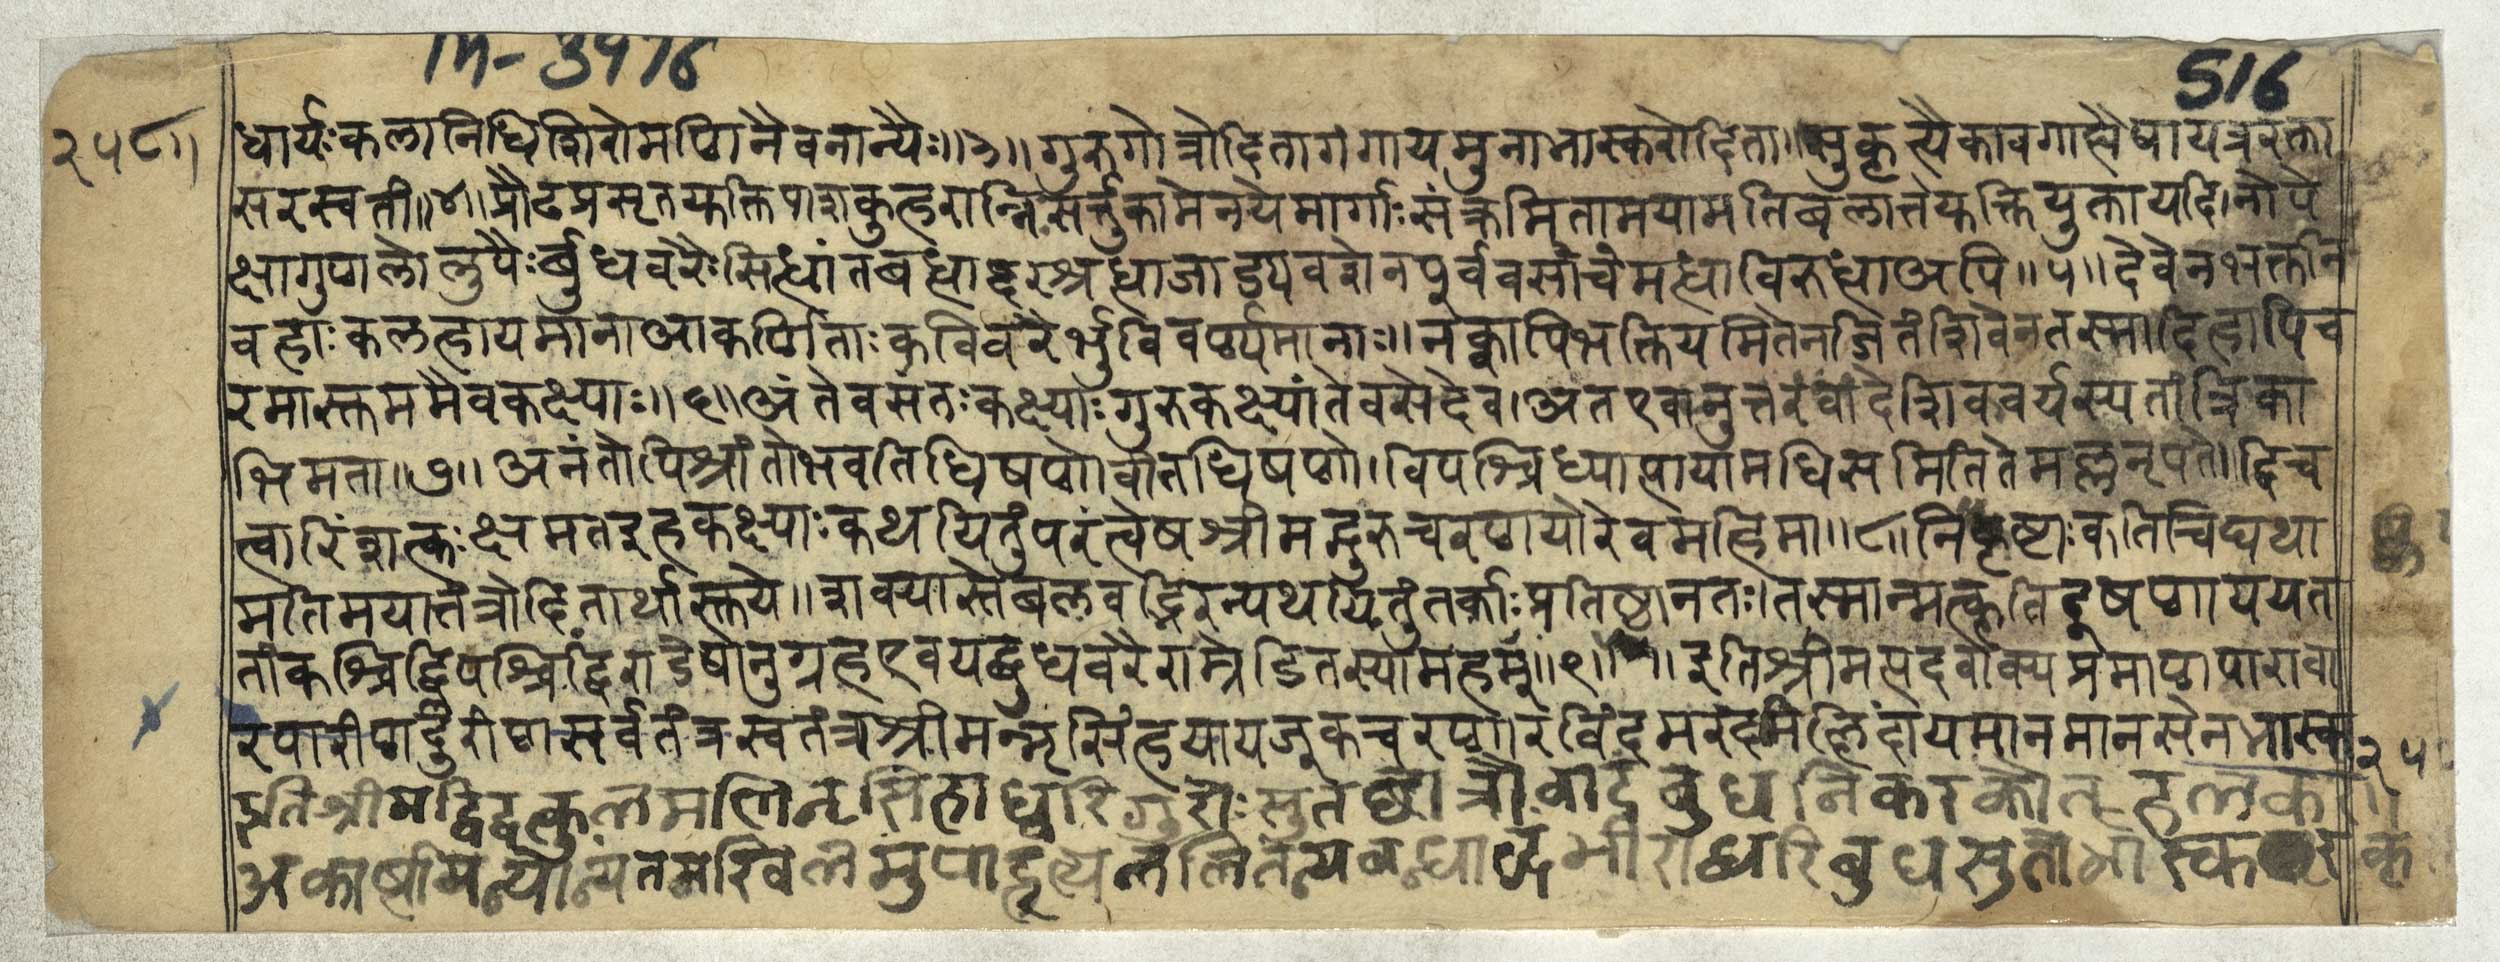 m-3976
516
२५८॥
धार्यः कलानिधिशिरोमणिनैव नान्यैः॥३॥ गुरुगोत्रोदिता गंगा यमुना भास्करोदिता॥ सुकृत्यैकावगाह्यैषा यत्र रक्ता
सरस्वती॥४॥ प्रौढप्रसृत कुहरान्निःसर्त्तुकामेन ये मार्गाः संक्रमिता मया मतिबलात्ते युक्तियुक्ता यदि। नोपे
क्ष्या गुणलोलुपैः र्बुधवरैः सिद्धांतबद्धादरश्रद्धाजाड्यवशेन पूर्व मद्धा विरुद्धा अपि॥५॥ देवेन भक्तनि
वहाः कलहायमाना आकर्णिताः कविवरैर्भुवि वर्ण्यमानाः॥ न क्वापि भक्तियमितेन जितं शिवेन तस्मादिहापि च
रमास्तु ममैव कक्ष्याः॥६॥ अंतेवसंतः कक्ष्याः गुरुकक्ष्यांते वसेदेव। अत एवानुत्तरवादे शिववर्यस्य तांत्रिका
भिमता॥७॥ अनंतोपि श्रांतो भवति धिषणो वा न धिषणो। विपश्चिध्या मधिसमिति ते मल्लनृपते। द्विच
त्वारिंशत्कः क्षमत इह कक्ष्याः कथयितुं परं त्वेष श्रीमद्गुरुचरणयोरेव महिमा॥८॥ निकृष्टाः कतिचिद्यथा
मति मया तंत्रोदितार्थास्तु ये॥ शक्यास्ते बलवद्भिरन्यथयितुं तर्काः प्रतिष्ठानतः। तस्मान्मत्कृतिदूषणाय यत
तां कश्चिद्विपश्चिद्विराडेषोनुग्रह एव यद्बुधवरैराम्रेडितस्यामहम्॥९॥ ॥ इति श्रीमत्पदवाक्यप्रमाणपारावा
रपारीणधुरीणसर्वतंत्रस्वतंत्रश्रीमन्नृसिंहयायजूकचरणारविंदमरंदमिलिंदायमानमानसेन भास्क २५
इति श्रीमद्विद्वत्कुलमलिनृसिंहाध्वरिगुरोः सुत वादं बुधनिकरकौतूहलकर॥
अकार्षीमन्योन्य तमखिल मुपादृत्य ललितं गंभीराध्वरिबुधसुतो भास्कर क